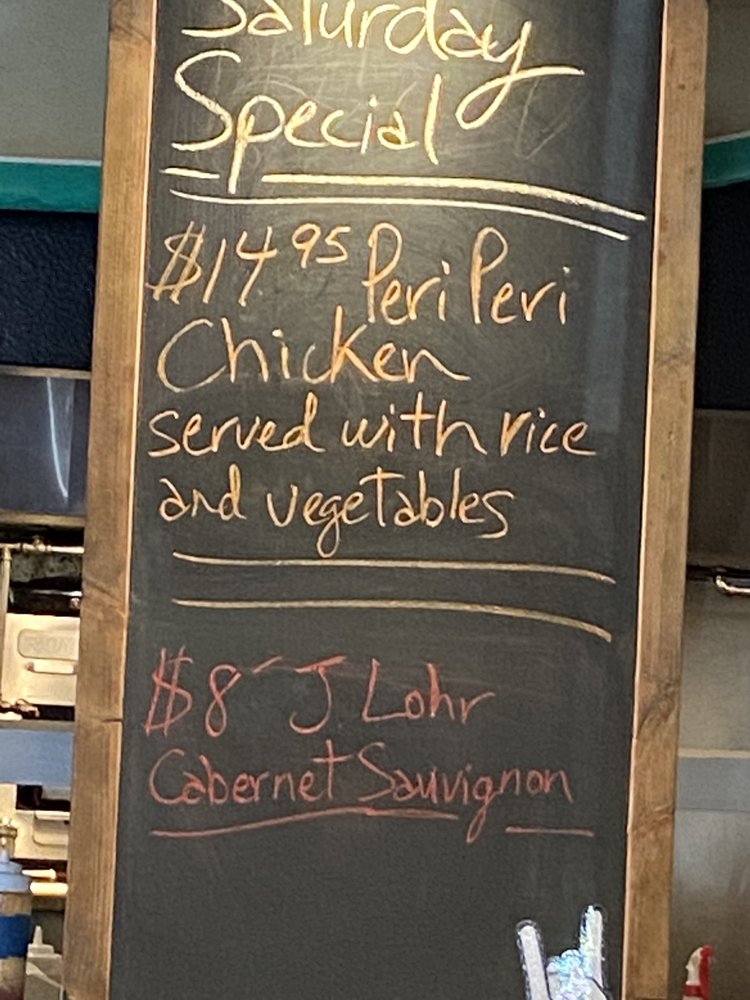 Saturday
Special
$14 95 Peri Peri
Chicken
served with rice
and vegetables
$8 J Lohr
Cabernet Sauvignon